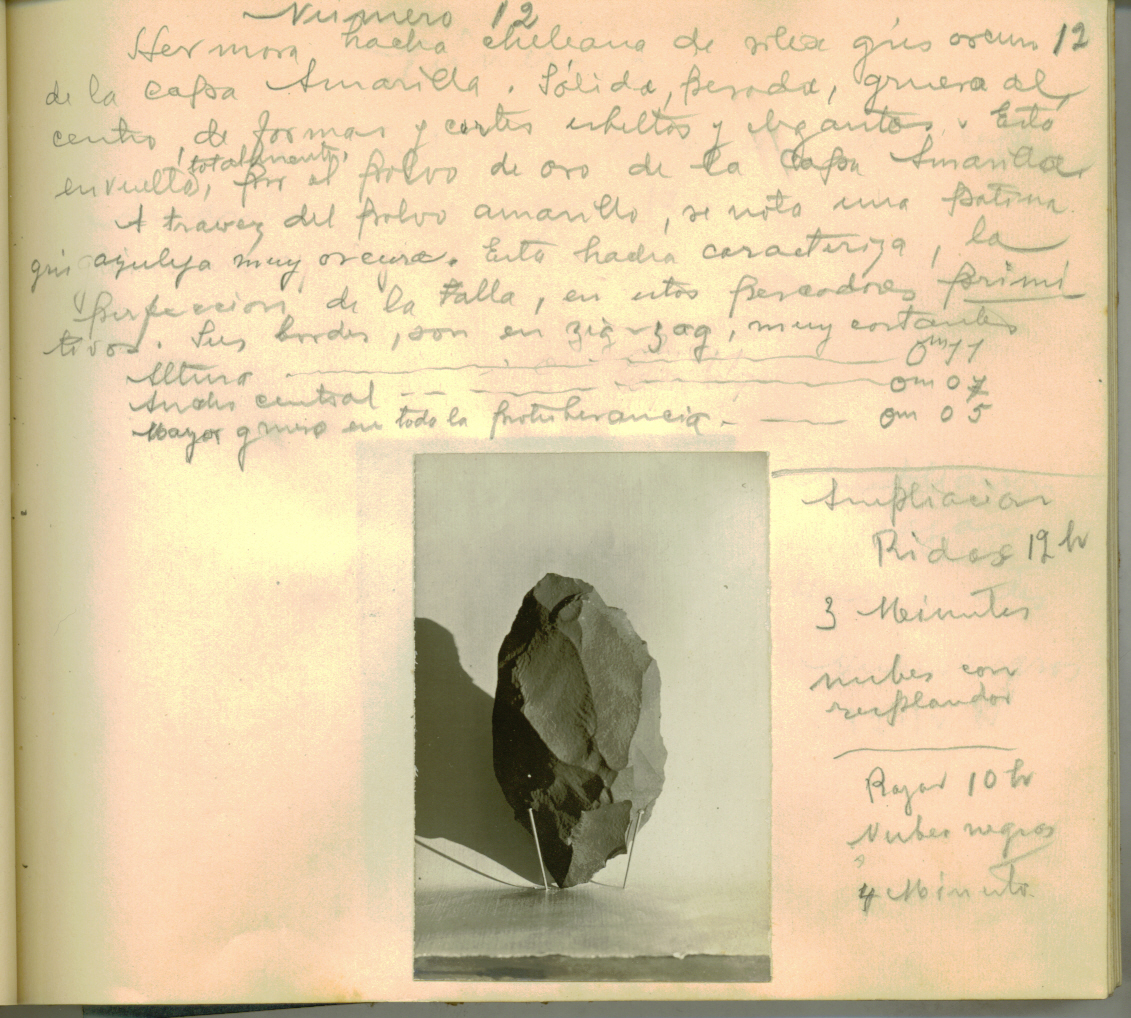 Número 12
12
Hermosa hacha cheleana de silex gris oscuro
de la capa Amarilla. Sólida, pesada, gruesa al
centro, de formas y cortes esbeltos y elegantes. Esta
totalmente,
envuelta, por el polvo de oro de la Capa Amarilla.
A travez del polvo amarillo, se nota una patina
gris azuleja muy oscura. Esta hacha caracteriza, la
perfeccion, de la Talla, en estos pescadores primi
tivos. Sus bordes, son en zig-zag, muy cortantes
Altura 0m11
Ancho central 0m 07
Mayor grueso en toda la protuberancia. 0m 05
Ampliacion
12 hr
3 Minutos
nubes con
resplandor
10 hr
Nubes negras
4 Minuto